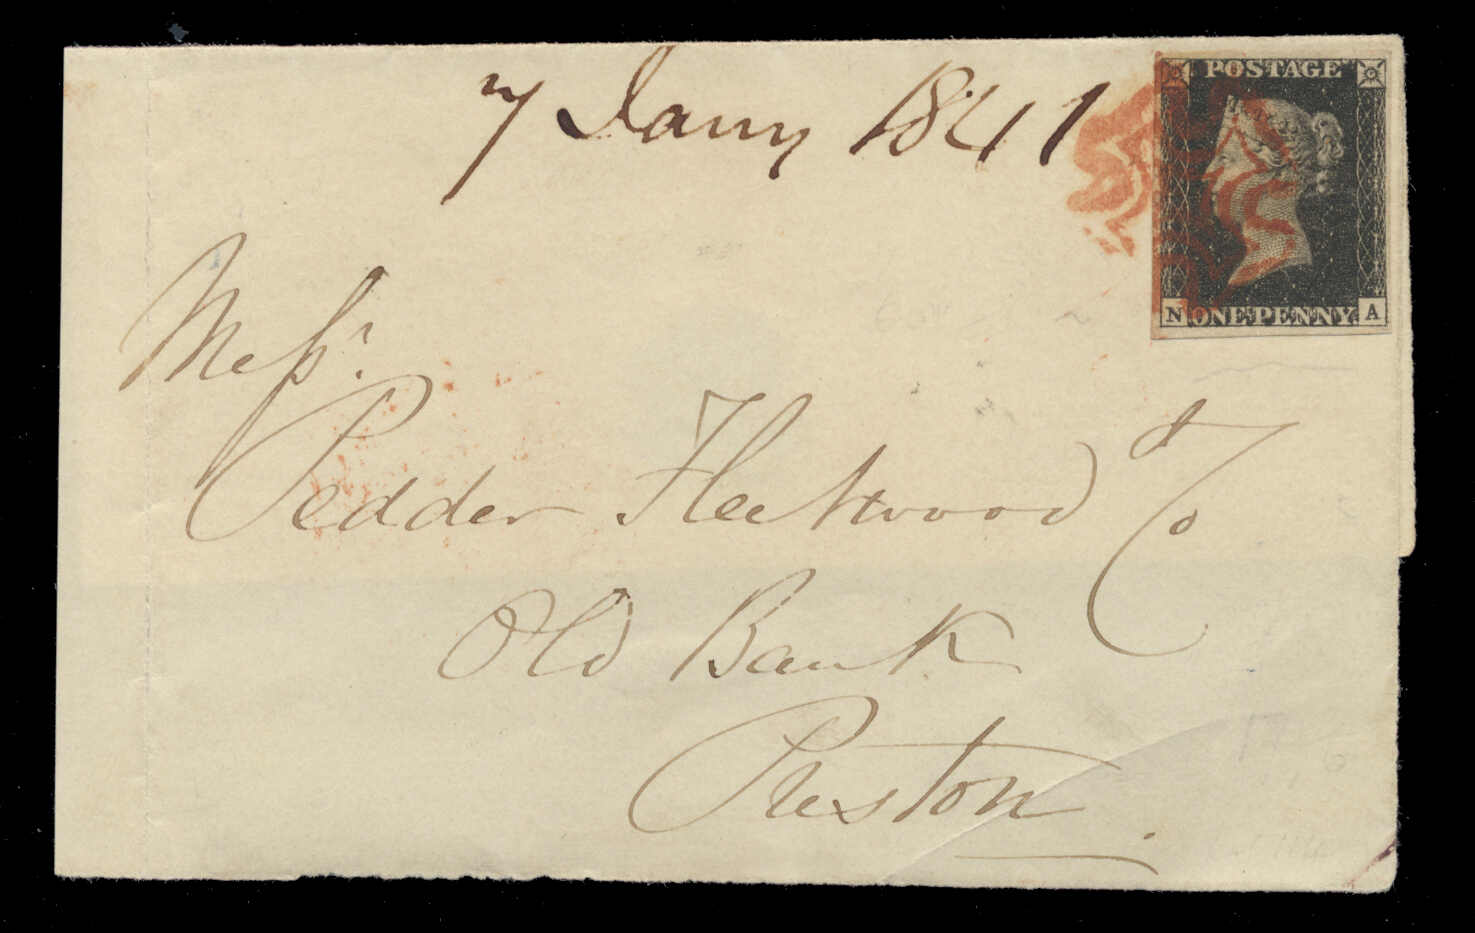 7 Jany 1841
POSTAGE
N ONE PENNY A
Messrs
Pedder Fleetwood & Co
Old Bank
Preston.